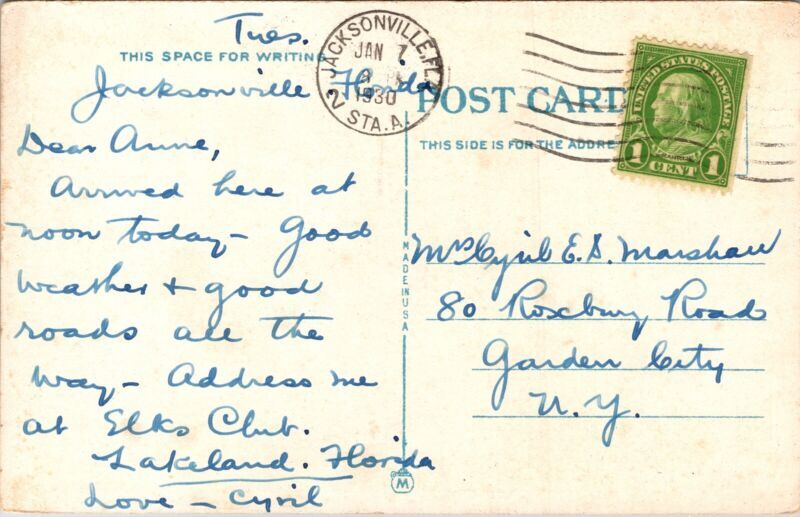 Tues.
THIS SPACE FOR WRITING
Jacksonville Florida
Dear Anne,
Arrived here at
noon today - Good
weather + good
roads all the
way - Address me
at Elks Club.
Lakeland. Florida
Love - Cyril
JACKSONVILLE, FLA.
JAN 7
1930
2 STA. A.
POST CARD
THIS SIDE IS FOR THE ADDRE
MADE IN USA
M
UNITED STATES POSTAGE
FRANKLIN
1 CENT 1
Mrs Cyril E. S. Marshall
80 Roxbury Road
Garden City
N. Y.